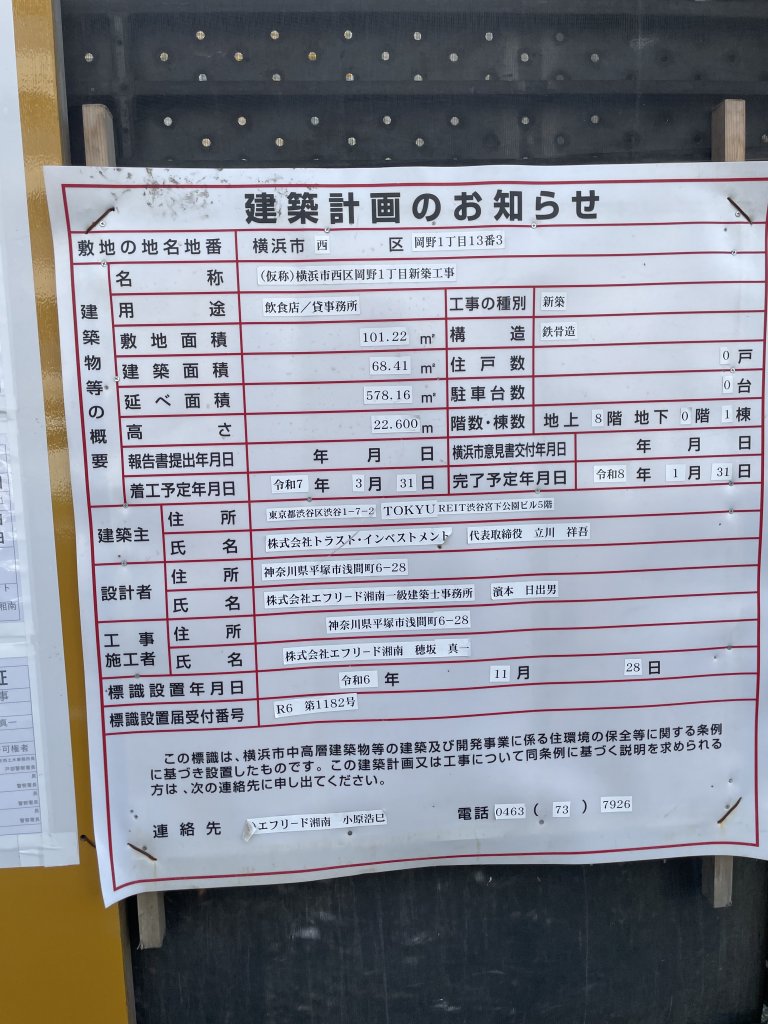 建築計画のお知らせ
敷地の地名地番 横浜市 西 区 岡野1丁目13番3
建築物等の概要
名称 (仮称)横浜市西区岡野1丁目新築工事
用途 飲食店／貸事務所 工事の種別 新築
敷地面積 101.22 ㎡ 構造 鉄骨造
建築面積 68.41 ㎡ 住戸数 0 戸
延べ面積 578.16 ㎡ 駐車台数 0 台
高さ 22.600 m 階数・棟数 地上 8 階 地下 0 階 1 棟
報告書提出年月日 年 月 日 横浜市意見書交付年月日 年 月 日
着工予定年月日 令和7 年 3 月 31 日 完了予定年月日 令和8 年 1 月 31 日
建築主 住所 東京都渋谷区渋谷1-7-2 TOKYU REIT渋谷宮下公園ビル5階
氏名 株式会社トラスト・インベストメント 代表取締役 立川 祥吾
設計者 住所 神奈川県平塚市浅間町6-28
氏名 株式会社エフリード湘南一級建築士事務所 濱本 日出男
工事施工者 住所 神奈川県平塚市浅間町6-28
氏名 株式会社エフリード湘南 穂坂 真一
標識設置年月日 令和6 年 11 月 28 日
標識設置届受付番号 R6 第1182号
この標識は、横浜市中高層建築物等の建築及び開発事業に係る住環境の保全等に関する条例
に基づき設置したものです。この建築計画又は工事について同条例に基づく説明を求められる
方は、次の連絡先に申し出てください。
連絡先 エフリード湘南 小原浩巳 電話 0463 ( 73 ) 7926